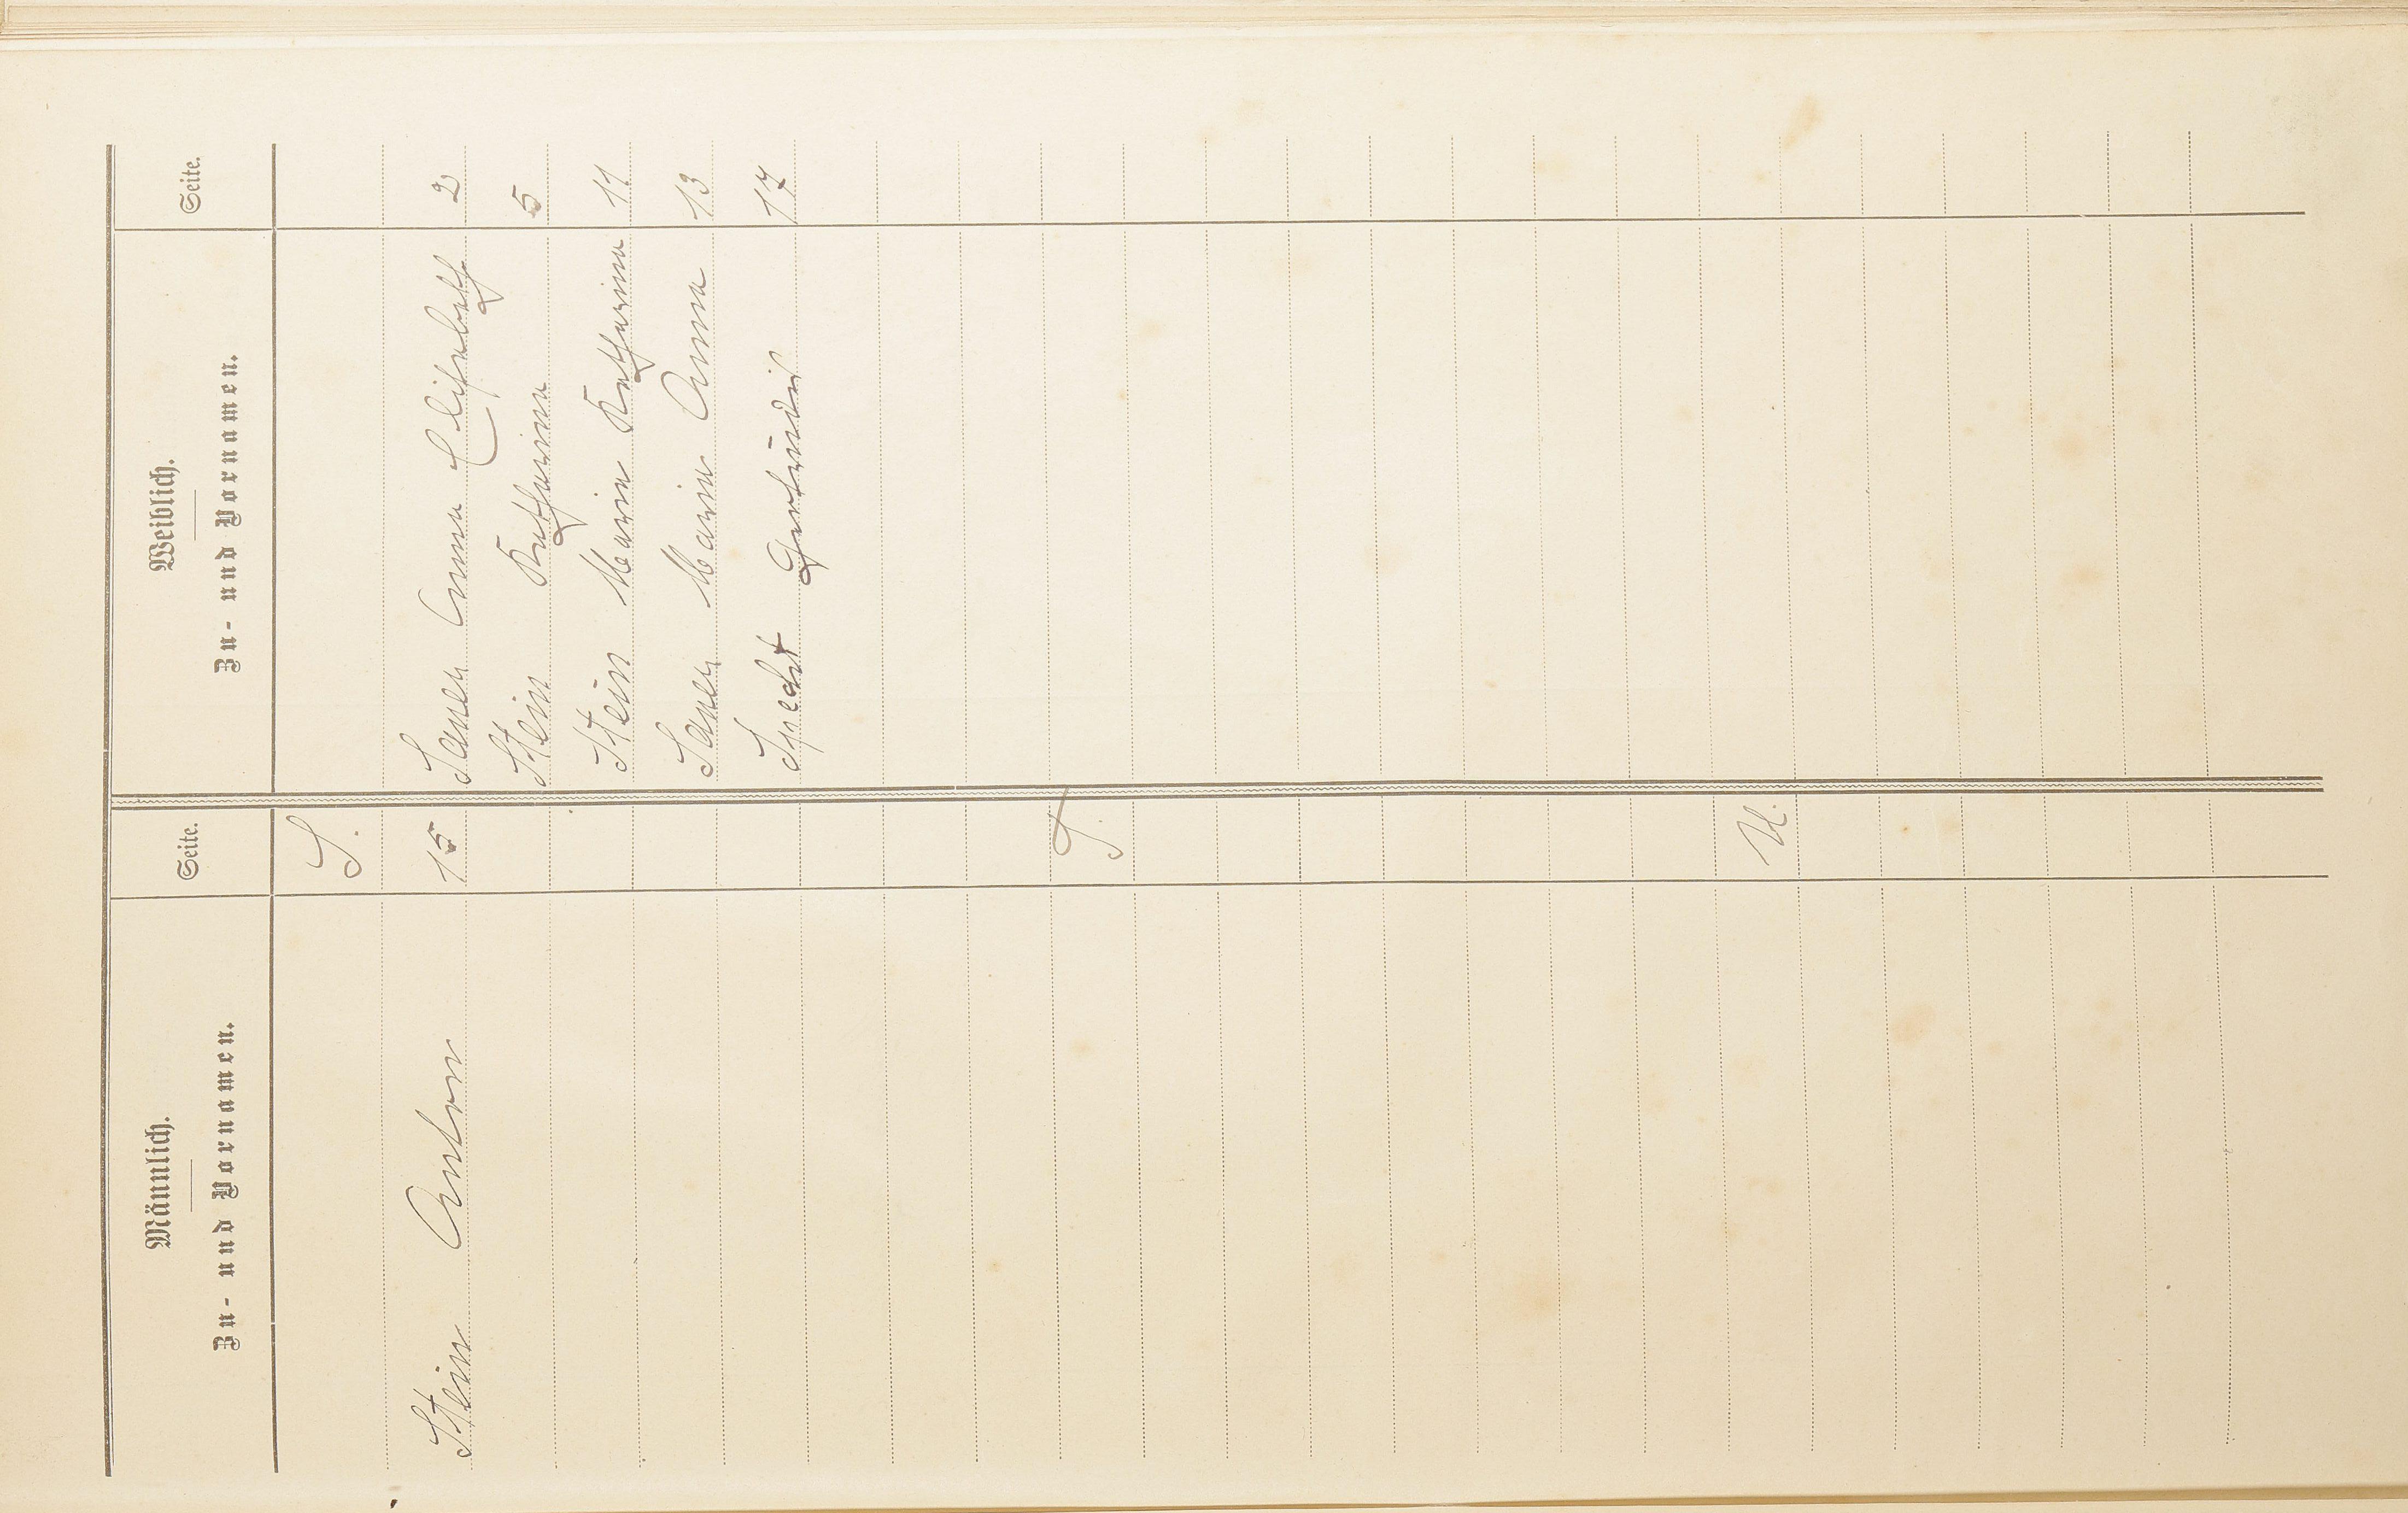 Männlich. Weiblich.
Zu- und Vornamen. Seite. Zu- und Vornamen. Seite.
S.
Stein Anton 15 Sauer Anna Elisabeth 2
Stein Katharina 5
Stein Maria Katharina 11
Sauer Maria Anna 13
Specht Gertrudis 17
T.
U.